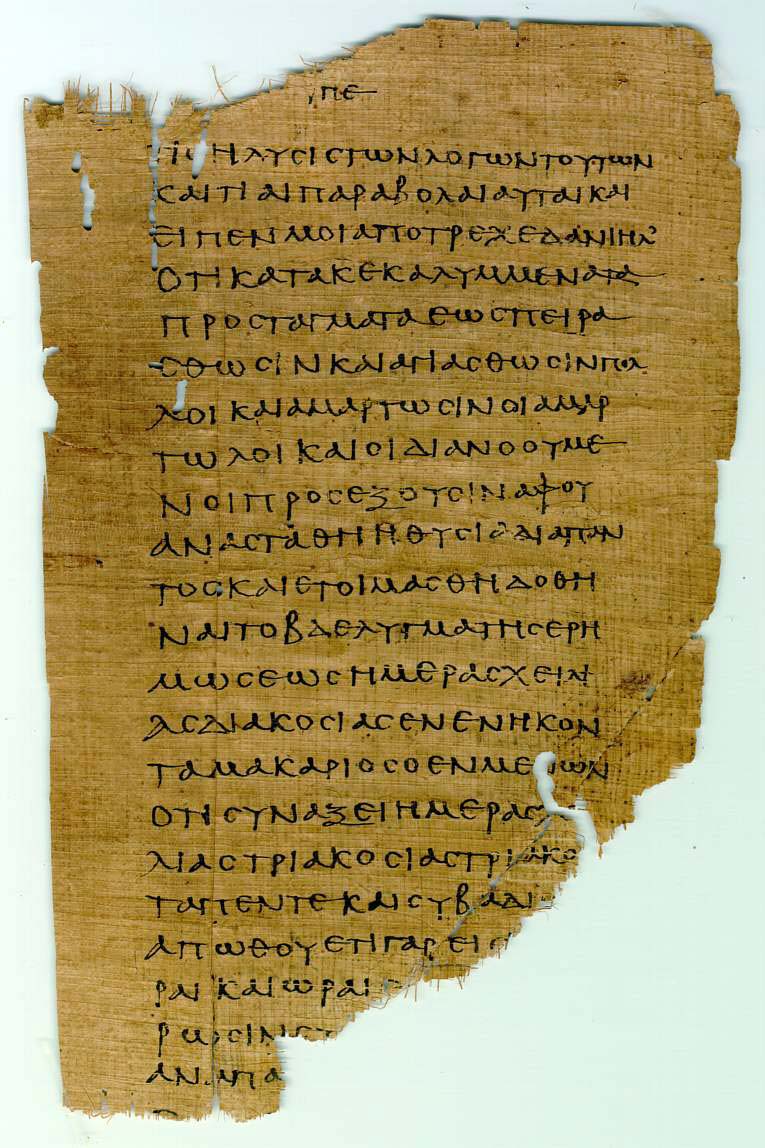 πε
τιc η λυcιc των λογων τουτων
και τι αι παραβολαι αυται και
ειπεν μοι αποτρεχε δανιηλ
οτι κατακεκαλυμμενα τα
προcταγματα εωc πειρα
cθωcιν και αγιαcθωcιν πολ
λοι και αμαρτωcιν οι αμαρ
τωλοι και οι διανοουμε
νοι προcεξουcιν αφ ου
αν αcταθη η θυcια δια παν
τοc και ετοιμαcθη δοθη
ναι το βδελυγμα τηc ερη
μωcεωc ημεραc χειλι
αc διακοcιαc ενενηκον
τα μακαριοc ο ενμενων
οτι cυναξει ημεραc χ
λιαc τριακοcιαc τριακο
τα πεντε και cυ βαδι
απωθου ετι γαρ ειcι
ραι και ωραι
ρωcιν
αναπα